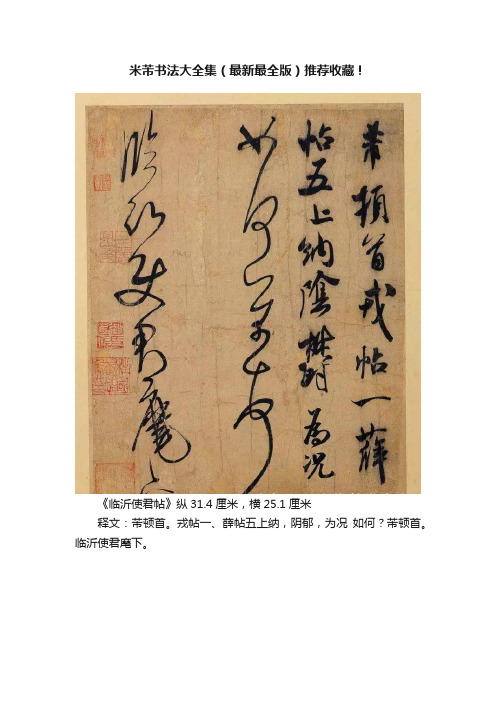 米芾书法大全集（最新最全版）推荐收藏！
芾頓首戎帖一薛
帖五上納陰鬱為況
如何芾頓首
臨沂使君麾下
《临沂使君帖》纵31.4厘米，横25.1厘米
释文：芾顿首。戎帖一、薛帖五上纳，阴郁，为况 如何？芾顿首。
临沂使君麾下。